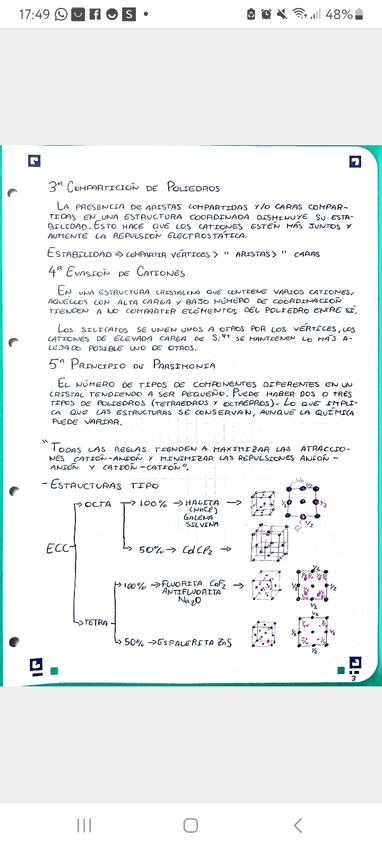 17:49 48%
3ª COMPARTICIÓN DE POLIEDROS
LA PRESENCIA DE ARISTAS COMPARTIDAS Y/O CARAS COMPAR-
TIDAS EN UNA ESTRUCTURA COORDINADA DISMINUYE SU ESTA-
BILIDAD. ESTO HACE QUE LOS CATIONES ESTÉN MÁS JUNTOS Y
AUMENTE LA REPULSIÓN ELECTROSTÁTICA.
ESTABILIDAD ⇒ COMPARTIR VÉRTICES > " ARISTAS > " CARAS
4ª EVASIÓN DE CATIONES
EN UNA ESTRUCTURA CRISTALINA QUE CONTIENE VARIOS CATIONES,
AQUELLOS CON ALTA CARGA Y BAJO NÚMERO DE COORDINACIÓN
TIENDEN A NO COMPARTIR ELEMENTOS DEL POLIEDRO ENTRE SÍ.
LOS SILICATOS SE UNEN UNOS A OTROS POR LOS VÉRTICES, LOS
CATIONES DE ELEVADA CARGA DE Si⁴⁺ SE MANTIENEN LO MÁS A-
LEJADO POSIBLE UNO DE OTROS.
5ª PRINCIPIO DE PARSIMONIA
EL NÚMERO DE TIPOS DE COMPONENTES DIFERENTES EN UN
CRISTAL TENDIENDO A SER PEQUEÑO. PUEDE HABER DOS O TRES
TIPOS DE POLIEDROS (TETRAEDROS Y OCTAEDROS). LO QUE IMPLI-
CA QUE LAS ESTRUCTURAS SE CONSERVAN, AUNQUE LA QUÍMICA
PUEDE VARIAR.
"TODAS LAS REGLAS TIENDEN A MAXIMIZAR LAS ATRACCIO-
NES CATIÓN-ANIÓN Y MINIMIZAR LAS REPULSIONES ANIÓN-
ANIÓN Y CATIÓN-CATIÓN".
- ESTRUCTURAS TIPO
OCTA → 100% → HALITA →
(NaCl)
GALENA
SILVINA
50% → CdCl₂ →
ECC
100% → FLUORITA CaF₂ →
ANTIFLUORITA
Na₂O
TETRA
50% → ESFALERITA ZnS
1/2 1/2
3